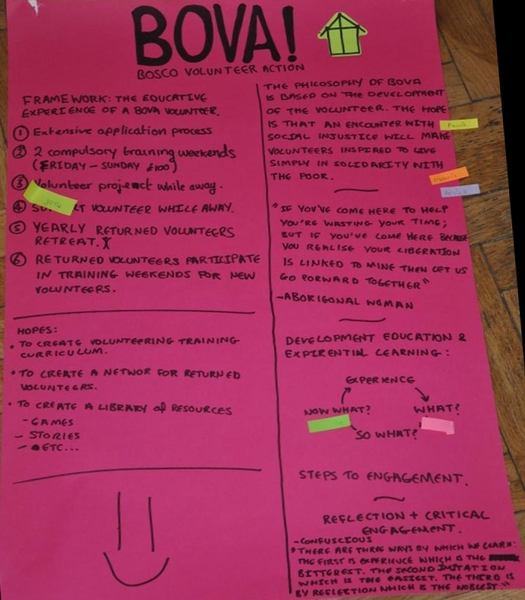 BOVA!
BOSCO VOLUNTEER ACTION
FRAMEWORK: THE EDUCATIVE
EXPERIENCE OF A BOVA VOLUNTEER.
① Extensive application process
② 2 compulsory training weekends
(FRIDAY - SUNDAY £100)
③ Volunteer project while away.
④ VOLUNTEER WHILE AWAY.
⑤ YEARLY RETURNED VOLUNTEERS
RETREAT.
⑥ RETURNED VOLUNTEERS PARTICIPATE
IN TRAINING WEEKENDS FOR NEW
VOLUNTEERS.
HOPES:
• TO CREATE VOLUNTEERING TRAINING
CURRICULUM.
• TO CREATE A NETWOR FOR RETURNED
VOLUNTEERS.
• TO CREATE A LIBRARY of RESOURCES
- GAMES
- STORIES
- ETC...
THE PHILOSOPHY OF BOVA
IS BASED ON THE DEVELOPMENT
OF THE VOLUNTEER. THE HOPE
IS THAT AN ENCOUNTER WITH
SOCIAL INJUSTICE WILL MAKE
VOLUNTEERS INSPIRED TO LIVE
SIMPLY IN SOLIDARITY WITH
THE POOR.
"IF YOU'VE COME HERE TO HELP
YOU'RE WASTING YOUR TIME;
BUT IF YOU'VE COME HERE BECAUSE
YOU REALISE YOUR LIBERATION
IS LINKED TO MINE THEN LET US
GO FORWARD TOGETHER"
- ABORIGONAL WOMAN
DEVELOPMENT EDUCATION &
EXPIRENTIAL LEARNING:
EXPERIENCE
NOW WHAT? WHAT?
SO WHAT?
STEPS TO ENGAGEMENT.
REFLECTION + CRITICAL
ENGAGEMENT.
- CONFUSCIOUS
"THERE ARE THREE WAYS BY WHICH WE LEARN:
THE FIRST IS EXPERIENCE WHICH IS THE
BITTEREST. THE SECOND IMITATION
WHICH IS THE EASIEST. THE THIRD IS
BY REFLECTION WHICH IS THE NOBLEST."